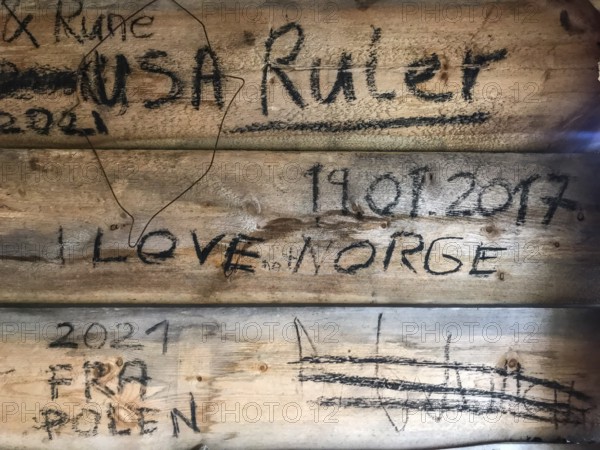 & Rune
USA Ruler
2021
19.01.2017.
I LOVE NORGE
2021
FRA
POLEN